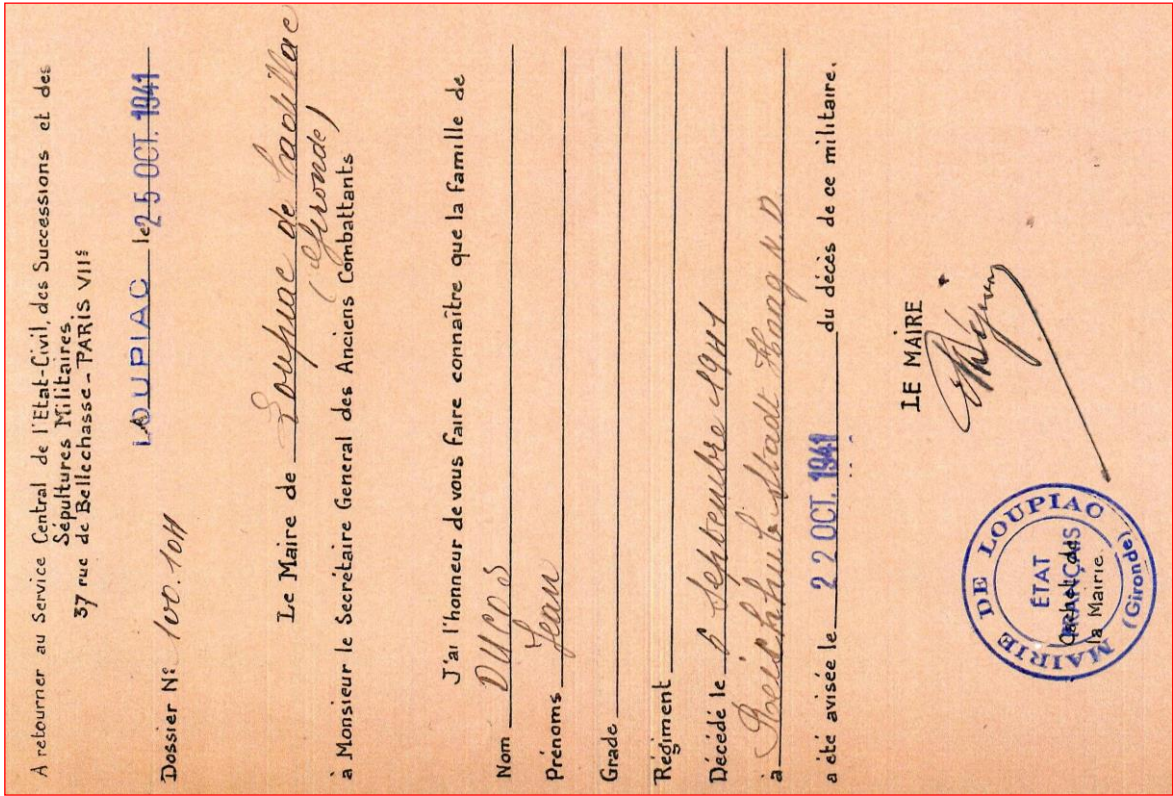 A retourner au Service Central de l'Etat-Civil, des Successions et des
Sépultures Militaires
37 rue de Bellechasse - PARIS VIIe
LOUPIAC le 25 OCT. 1941
Dossier N° 100.10H
Le Maire de Loupiac de Cadillac
(Gironde)
à Monsieur le Secrétaire General des Anciens Combattants
J'ai l'honneur de vous faire connaître que la famille de
Nom DUCOS
Prénoms Jean
Grade
Régiment
Décédé le 6 Septembre 1941
à
a été avisée le 22 OCT. 1941 du décès de ce militaire.
LE MAIRE
MAIRIE DE LOUPIAC
ÉTAT
FRANÇAIS
Cachet de
la Mairie.
(Gironde)